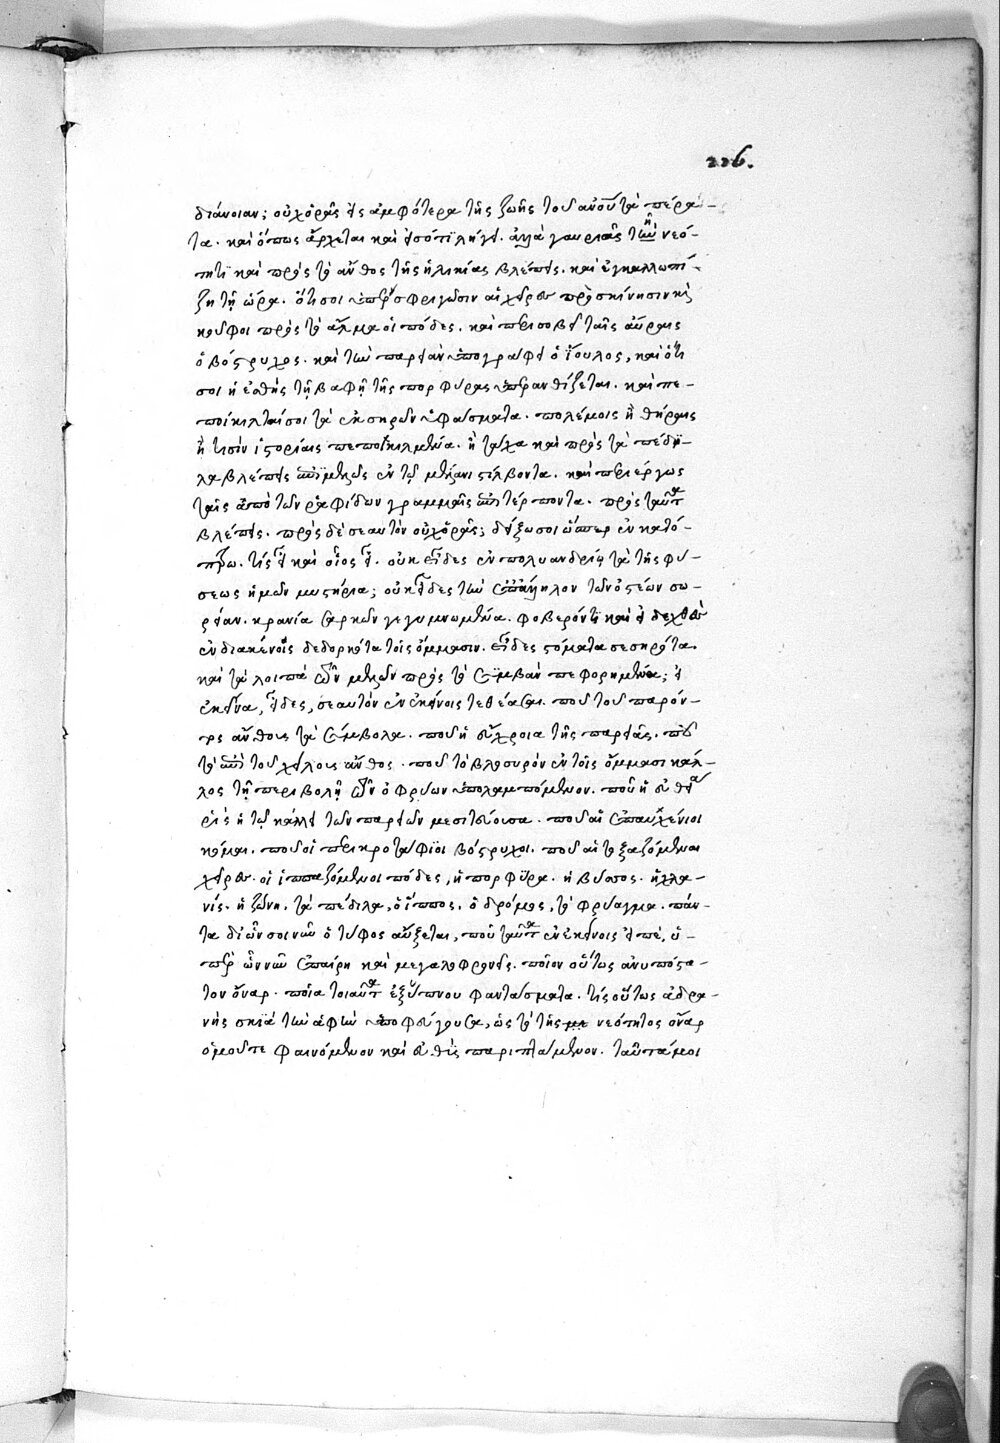 226.
διάνοιαν; οὐχ ὁρᾷς εἰς ἀμφότερα τῆς ζωῆς τοῦ ἀνου τὰ πέρα-
τα. καὶ ὅπως ἄρχεται καὶ εἰς ὅ τι λήγει. ἀλλὰ γαυριᾷς τῇ νεό-
τητι καὶ πρὸς τὸ ἄνθος τῆς ἡλικίας βλέπεις. καὶ ἐγκαλλωπί-
ζῃ τῇ ὥρᾳ. ὅτι σοι σφριγῶσιν αἱ χεῖρες πρὸς κίνησιν κὶ
κοῦφοι πρὸς τὸ ἅλμα οἱ πόδες. καὶ περισοβεῖ ταῖς αὔραις
ὁ βόστρυχος. καὶ τὴν παρειὰν ὑπογράφει ὁ ἴουλος, καὶ ὅτι
σοι ἡ ἐσθὴς τῇ βαφῇ τῆς πορφύρας ὑπερανθίζεται. καὶ πε-
ποίκιλταί σοι τὰ ἐκ σηρῶν ὑφάσματα. πολέμοις ἢ θήραις
ἤ τισιν ἱστορίαις πεποικιλμένα. ἢ τάχα καὶ πρὸς τὰ πέδι-
λα βλέπεις ἐπιμελῶς ἐν τῷ μέλανι στίλβοντα. καὶ περιέργως
ταῖς ἀπὸ τῶν ῥαφίδων γραμμαῖς ἐπιτέρποντα. πρὸς ταῦτα
βλέπεις. πρὸς δὲ σεαυτὸν οὐχ ὁρᾷς; δείξω σοι ὥσπερ ἐν κατό-
πτρω. τίς εἶ καὶ οἷος εἶ. οὐκ εἶδες ἐν πολυανδρίῳ τὰ τῆς φύ-
σεως ἡμῶν μυστήρια; οὐκ εἶδες τὴν ἐπάλληλον τῶν ὀστέων σω-
ρείαν. κρανία σαρκῶν γεγυμνωμένα. φοβερόν τι καὶ εἰδεχθὲς
ἐν διακένοις δεδορκότα τοῖς ὄμμασιν. εἶδες στόματα σεσηρότα.
καὶ τὰ λοιπὰ τῶν μελῶν πρὸς τὸ συμβὰν πεφορημένα; εἰ
ἐκεῖνα, εἶδες, σεαυτὸν ἐν ἐκείνοις τεθέασαι. ποῦ τοῦ παρόν-
τος ἄνθους τὰ σύμβολα. ποῦ ἡ εὔχροια τῆς παρειᾶς. ποῦ
τὸ ἐπὶ τοῦ χείλους ἄνθος. ποῦ τὸ βλοσυρὸν ἐν τοῖς ὄμμασι κάλ-
λος τῇ περιβολῇ τῶν ὀφρύων ὑπολαμπόμενον. ποῦ ἡ εὐθεῖα
ῥὶς ἡ τῷ κάλλει τῶν παρειῶν μεσιτεύουσα. ποῦ αἱ ἐπαυχένιοι
κόμαι. ποῦ οἱ περικροτάφιοι βόστρυχοι. ποῦ αἱ τοξαζόμεναι
χεῖρες. οἱ ἱππαζόμενοι πόδες, ἡ πορφύρα. ἡ βύσσος. ἡ χλα-
νίς. ἡ ζώνη. τὰ πέδιλα, ὁ ἵππος. ὁ δρόμος, τὸ φρύαγμα. πάν-
τα δι ὧν σοι νῦν ὁ τύφος αὔξεται, ποῦ ταῦτα ἐν ἐκείνοις εἰπέ, ὑ-
πὲρ ὧν νῦν ἐπαίρῃ καὶ μεγαλοφρονεῖς. ποῖον οὕτως ἀνυπόστα-
τον ὄναρ. ποῖα τοιαῦτα ἐξ ὕπνου φαντάσματα. τίς οὕτως ἀδρα-
νὴς σκιὰ τὴν ἁφὴν ὑποφεύγουσα, ὡς τὸ τῆς με νεότητος ὄναρ
ὁμοῦ τε φαινόμενον καὶ εὐθὺς παριπτάμενον. ταῦτά μοι